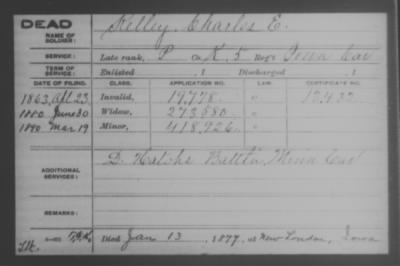 DEAD
NAME OF SOLDIER: Kelley, Charles E.
SERVICE: Late rank, P Co. K, 5 Reg't Iowa Cav
TERM OF SERVICE: Enlisted , 1 Discharged , 1
DATE OF FILING. CLASS. APPLICATION NO. LAW. CERTIFICATE NO.
1863, Invalid, 19,778 " 17,432
1880 June 30 Widow, 273,580 "
1890 Mar 19 Minor, 418,926 "
ADDITIONAL SERVICES: D. Hatchs Battn, Minn Cav
REMARKS:
Died Jan 13, 1877, at New London, Iowa